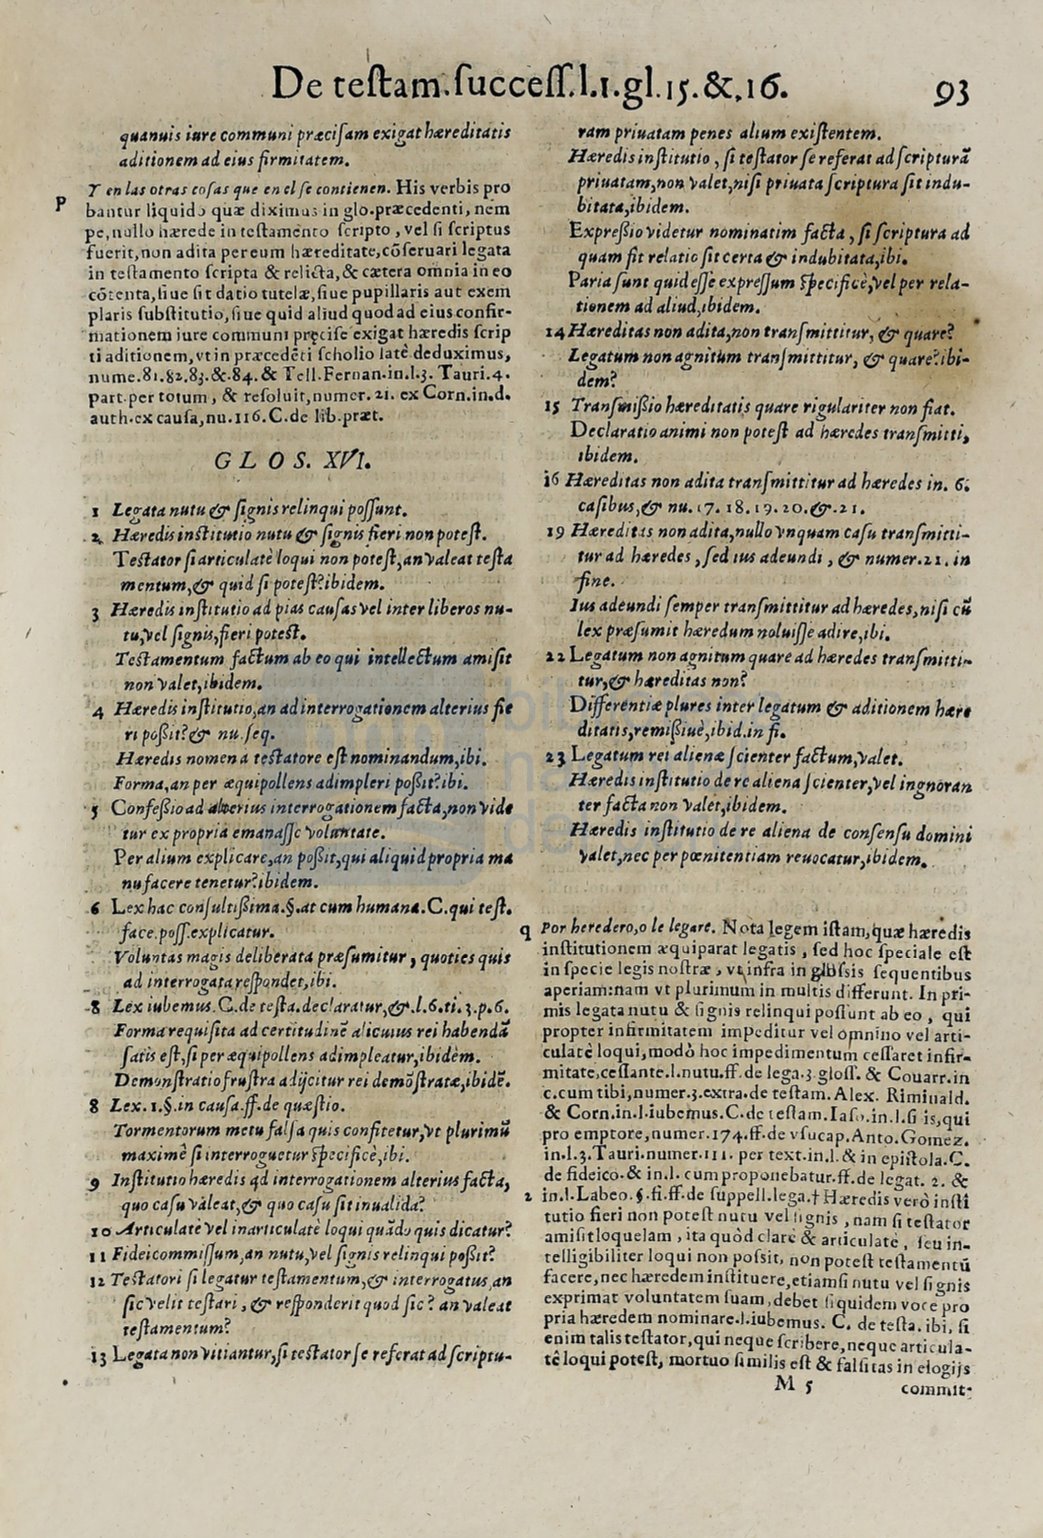 De testam. success. l.1. gl. 15. &. 16. 93
quanuis iure communi præcisam exigat hæreditatis
aditionem ad eius firmitatem.
P Y en las otras cosas que en el se contienen. His verbis pro
bantur liquido quæ diximus in glo. præcedenti, nem
pe, nullo hærede in testamento scripto, vel si scriptus
fuerit, non adita per eum hæreditate, cōseruari legata
in testamento scripta & relicta, & cætera omnia in eo
cōtenta, siue sit datio tutelæ, siue pupillaris aut exem
plaris substitutio, siue quid aliud quod ad eius confir-
mationem iure communi pręcise exigat hæredis scrip
ti aditionem, vt in præcedēti scholio latè deduximus,
nume. 81. 82. 83. &. 84. & Tell. Fernan. in. l. 3. Tauri. 4.
part. per totum, & resoluit, numer. 21. ex Corn. in. d.
auth. ex causa, nu. 116. C. de lib. præt.
GLOS. XVI.
1 Legata nutu & signis relinqui possunt.
2 Hæredis institutio nutu & signis fieri non potest.
Testator si articulatè loqui non potest, an valeat testa
mentum, & quid si potest? ibidem.
3 Hæredis institutio ad pias causas vel inter liberos nu-
tu, vel signis, fieri potest.
Testamentum factum ab eo qui intellectum amisit
non valet, ibidem.
4 Hæredis institutio, an ad interrogationem alterius fie
ri possit? & nu. seq.
Hæredis nomen a testatore est nominandum, ibi.
Forma, an per æquipollens adimpleri possit? ibi.
5 Confessio ad alterius interrogationem facta, non vide
tur ex propria emanasse voluntate.
Per alium explicare, an possit, qui aliquid propria ma
nu facere tenetur? ibidem.
6 Lex hac consultissima. §. at cum humana. C. qui test.
face. poss. explicatur.
Voluntas magis deliberata præsumitur, quoties quis
ad interrogata respondet, ibi.
8 Lex iubemus. C. de testa. declaratur, &. l. 6. ti. 3. p. 6.
Forma requisita ad certitudinē alicuius rei habendā
satis est, si per æquipollens adimpleatur, ibidem.
Demonstratio frustra adijcitur rei demōstratæ, ibidē.
8 Lex. 1. §. in causa. ff. de quæstio.
Tormentorum metu falsa quis confitetur, vt plurimū
maximè si interroguetur specificè, ibi.
9 Institutio hæredis ad interrogationem alterius facta,
quo casu valeat, & quo casu sit inualida?
10 Articulatè vel inarticulatè loqui quādo quis dicatur?
11 Fideicommissum, an nutu, vel signis relinqui possit?
12 Testatori si legatur testamentum, & interrogatus, an
sic velit testari, & responderit quod sic? an valeat
testamentum?
13 Legata non vitiantur, si testator se referat ad scriptu-
ram priuatam penes alium existentem.
Hæredis institutio, si testator se referat ad scripturā
priuatam, non valet, nisi priuata scriptura sit indu-
bitata, ibidem.
Expressio videtur nominatim facta, si scriptura ad
quam fit relatio sit certa & indubitata, ibi.
Paria sunt quid esse expressum specificè, vel per rela-
tionem ad aliud, ibidem.
14 Hæreditas non adita, non transmittitur, & quare?
Legatum non agnitum transmittitur, & quare? ibi-
dem?
15 Transmissio hæreditatis quare rigulariter non fiat.
Declaratio animi non potest ad hæredes transmitti,
ibidem.
16 Hæreditas non adita transmittitur ad hæredes in. 6.
casibus, & nu. 17. 18. 19. 20. &. 21.
19 Hæreditas non adita, nullo vnquam casu transmitti-
tur ad hæredes, sed ius adeundi, & numer. 21. in
fine.
Ius adeundi semper transmittitur ad hæredes, nisi cū
lex præsumit hæredum noluisse adire, ibi.
22 Legatum non agnitum quare ad hæredes transmitti-
tur, & hæreditas non?
Differentiæ plures inter legatum & aditionem hære
ditatis, remissiuè, ibid. in fi.
23 Legatum rei alienæ scienter factum, valet.
Hæredis institutio de re aliena scienter, vel ingnoran
ter facta non valet, ibidem.
Hæredis institutio de re aliena de consensu domini
valet, nec per pœnitentiam reuocatur, ibidem.
q Por heredero, o le legare. Nota legem istam, quæ hæredis
institutionem æquiparat legatis, sed hoc speciale est
in specie legis nostræ, vt infra in glossis sequentibus
aperiam: nam vt plurimum in multis differunt. In pri-
mis legata nutu & signis relinqui possunt ab eo, qui
propter infirmitatem impeditur vel omnino vel arti-
culatè loqui, modò hoc impedimentum cessaret infir-
mitate, cessante. l. nutu. ff. de lega. 3. gloss. & Couarr. in
c. cum tibi, numer. 3. extra. de testam. Alex. Riminald.
& Corn. in. l. iubemus. C. de testam. Iaso. in. l. si is, qui
pro emptore, numer. 174. ff. de vsucap. Anto. Gomez.
in. l. 3. Tauri. numer. 111. per text. in. l. & in epistola. C.
de fideico. & in. l. cum proponebatur. ff. de legat. 2. &
2 in. l. Labeo. §. fi. ff. de suppell. lega. † Hæredis verò insti
tutio fieri non potest nutu vel signis, nam si testator
amisit loquelam, ita quòd clarè & articulatè, seu in-
telligibiliter loqui non possit, non potest testamentū
facere, nec hæredem instituere, etiamsi nutu vel signis
exprimat voluntatem suam, debet siquidem voce pro
pria hæredem nominare. l. iubemus. C. de testa. ibi, si
enim talis testator, qui neque scribere, neque articula-
tè loqui potest, mortuo similis est & falsitas in elogijs
M 5 commit-